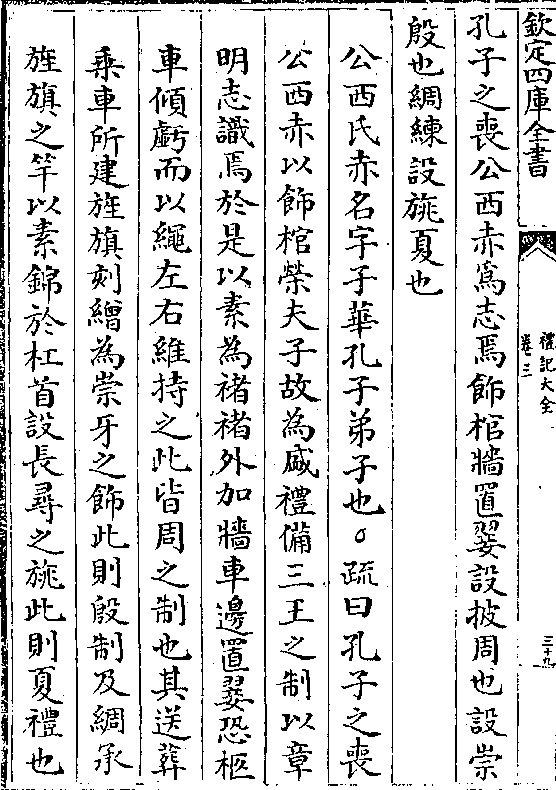 欽定四庫全書
禮記大全
卷三
三十九
孔子之喪公西赤爲志焉飾棺牆置翣設披周也設崇
殷也綢練設旐夏也
公西氏赤名字子華孔子弟子也○疏曰孔子之喪
公西赤以飾棺榮夫子故為盛禮備三王之制以章
明志識焉於是以素為褚褚外加牆車邊置翣恐柩
車傾虧而以繩左右維持之此皆周之制也其送葬
乗車所建旌旗刻繒為崇牙之飾此則殷制及綢承
旌旗之竿以素錦於杠首設長尋之旐此則夏禮也